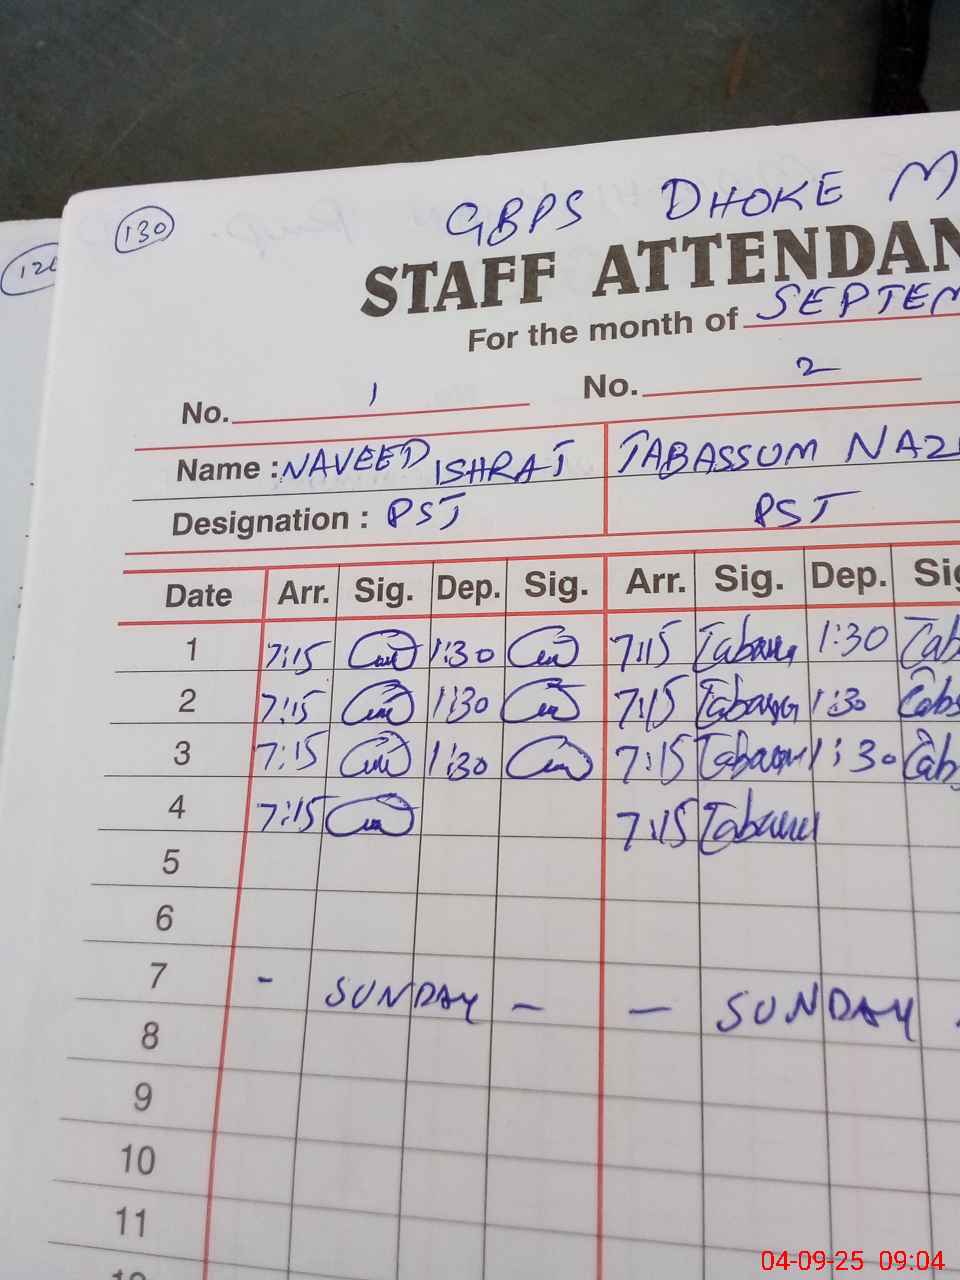 130
GBPS DHOKE M
STAFF ATTENDAN
For the month of SEPTEM
No. 1 No. 2
Name : NAVEED ISHRAT TABASSUM NAZ
Designation : PST PST
Date Arr. Sig. Dep. Sig. Arr. Sig. Dep. Sig
1 7:15 1:30 7:15 1:30
2 7:15 1:30 7:15 1:30
3 7:15 1:30 7:15 1:30
4 7:15 7:15
5
6
7 - SUNDAY - - SUNDAY
8
9
10
11
04-09-25 09:04